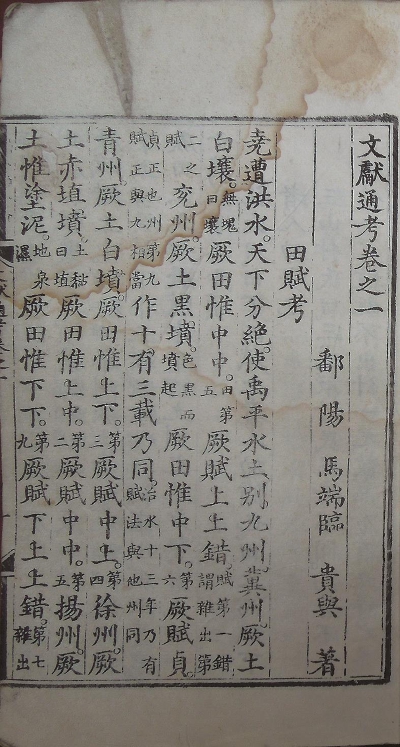 文獻通考卷之一
鄱陽馬端臨貴與著
田賦考
堯遭洪水。天下分絕。使禹平水土。別九州。冀州。厥土
白壤。無塊曰壤厥田惟中中。田第五厥賦上上錯。賦第一錯謂雜出第
二之賦兗州。厥土黑墳。色黑而墳起厥田惟中下。第六厥賦貞。
貞正也州第九賦正與九相當作十有三載乃同。治水十三年乃有賦法與他州同
青州。厥土白墳。厥田惟上下。第三厥賦中上。第四徐州。厥
土赤埴墳。土黏曰埴厥田惟上中。第二厥賦中中。第五揚州。厥
土惟塗泥。地泉濕厥田惟下下。第九厥賦下上上錯。第七雜出